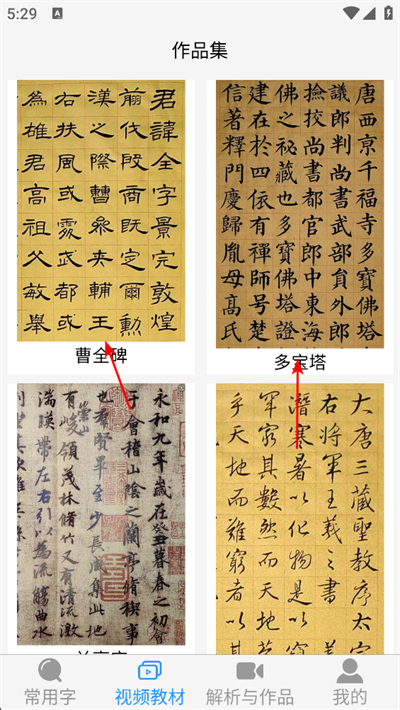 5:29
作品集
君諱全字景完敦煌
翦伐殷商既定爾勳
漢之際曹參夾輔王
右扶風或處武都或
為雄君高祖父敏舉
曹全碑
唐西京千福寺多寶佛塔
議郎判尚書武部員外郎
撿挍尚書都官郎中東海
佛之祕藏也多寶佛塔證
建在於四依有禪師号楚
信著釋門慶歸胤母高氏
多宝塔
永和九年歲在癸丑暮春之初
于會稽山陰之蘭亭脩稧事
也群賢畢至少長咸集此地
崇山
有峻領茂林脩竹又有清流激
湍暎帶左右引以為流觴曲水
大唐三藏聖教序太
右將軍王羲之書
潛寒暑以化物是以
罕窮其數然而天地
乎天地而難窮者以
常用字
视频教材
解析与作品
我的